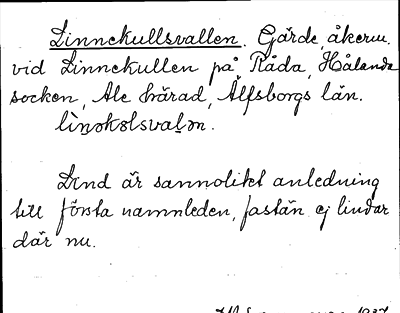 Linnekullsvallen. Gärde, åkerm.
vid Linnekullen på Råda, Hålanda
socken, Ale härad, Älfsborgs län.
lìnəkəlsvalən.
Lind är sannolikt anledning
till första namnleden, fastän ej lindar
där nu.
1937